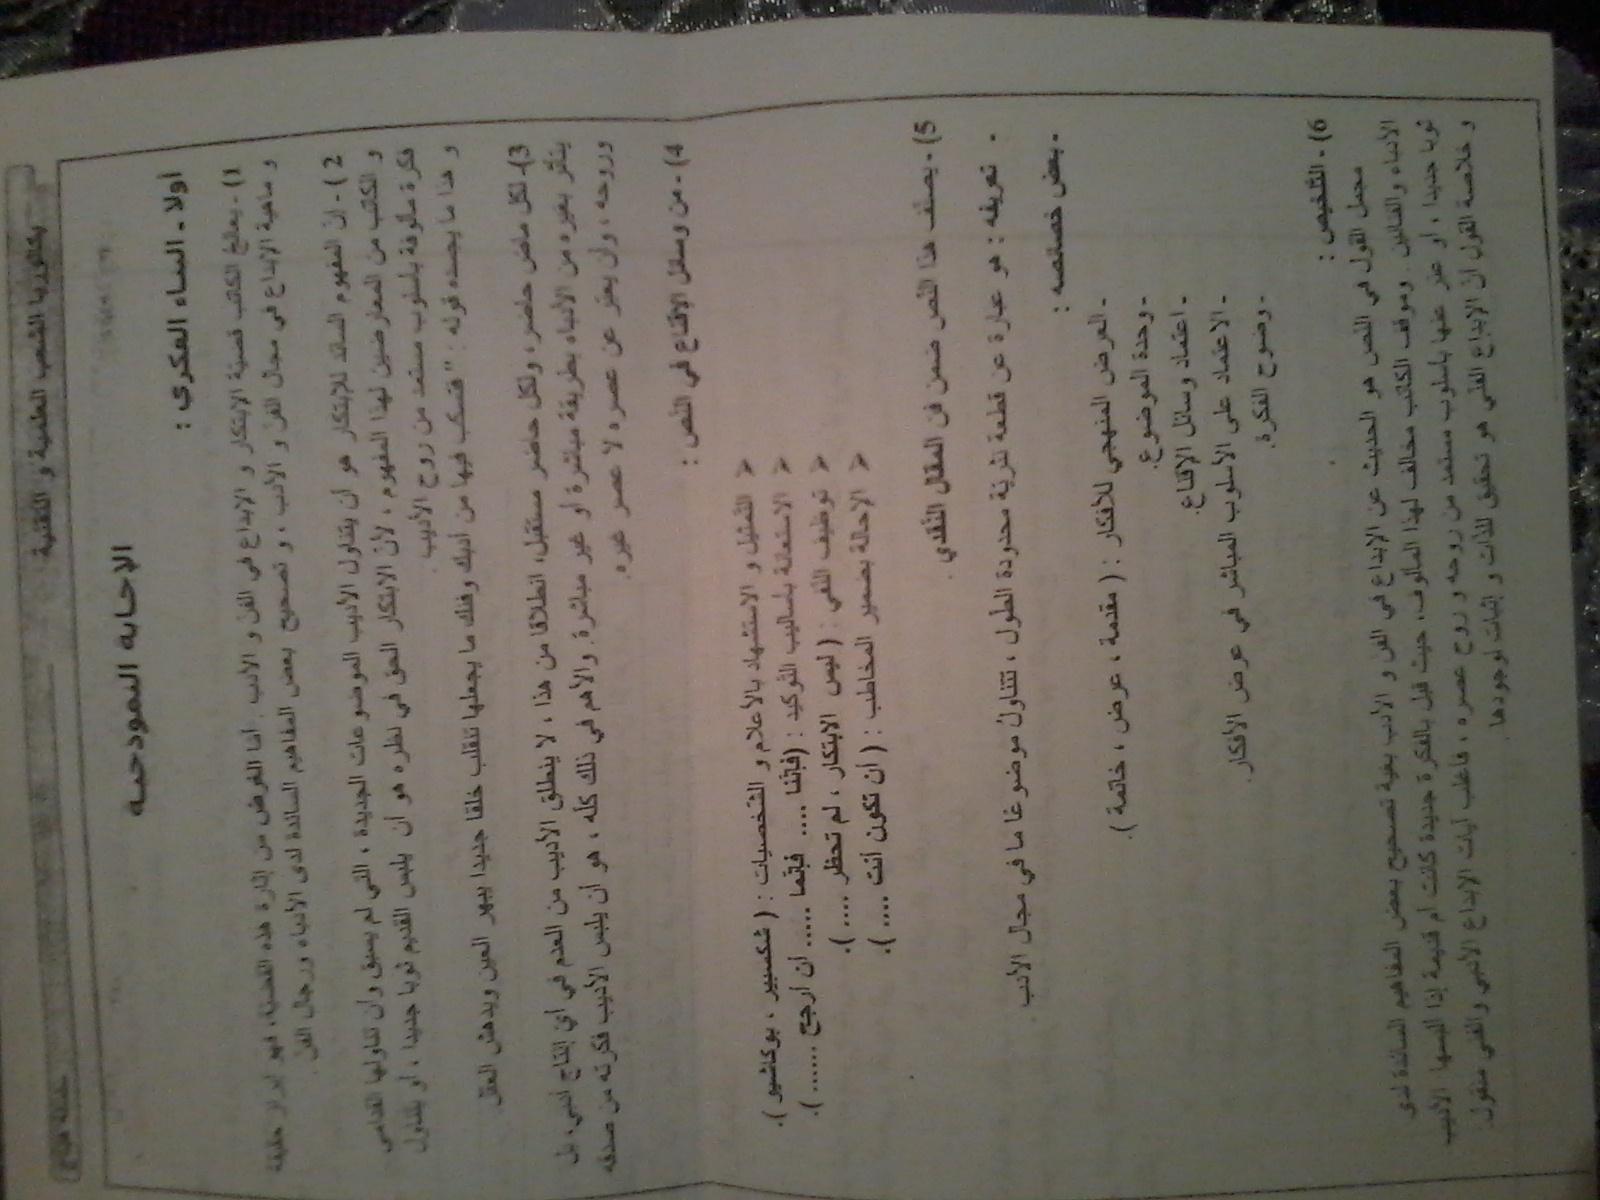 بكالوريا الشعب العلمية و التقنية
الإجابة النموذجية
أولا - البناء الفكري :
1) - يعالج الكاتب قضية الابتكار و الإبداع في الفن و الأدب . أما الغرض من إثارة هذه القضية ، فهو إبراز حقيقة
و ماهية الإبداع في مجال الفن و الأدب ، و تصحيح بعض المفاهيم السائدة لدى الأدباء ورجال الفن .
2) - إن المفهوم السائد للابتكار هو أن يتناول الأديب الموضوعات الجديدة ، التي لم يسبق وأن تناولها القدامى
و الكاتب من المعارضين لهذا المفهوم ، لأن الابتكار الحق في نظره هو أن يلبس القديم ثوبا جديدا ، أو يتناول
فكرة مألوفة بأسلوب مستمد من روح الأديب .
و هذا ما يجسده قوله : " فتسكب فيها من أدبك وفنك ما يجعلها تنقلب خلقا جديدا يبهر العين ويدهش العقل
3)- لكل ماض حاضر ، ولكل حاضر مستقبل، انطلاقا من هذا ، لا ينطلق الأديب من العدم في أي إنتاج أدبي، بل
يتأثر بغيره من الأدباء بطريقة مباشرة أو غير مباشرة . والأهم في ذلك كله ، هو أن يلبس الأديب فكرته من صدقه
وروحه ، وأن يعبّر عن عصره لا عصر غيره.
4) - من وسائل الإقناع في النّص :
➢ التمثيل و الاستشهاد بالأعلام و الشخصيات : ( شكسبير ، بوكاشيو ).
➢ الاستعانة بأساليب التوكيد : (فإننا .... فإنما ..... أن أرجح ......).
➢ توظيف النّفي : ( ليس الابتكار ، لم تحظر ....).
➢ الإحالة بضمير المخاطب : ( أن تكون أنت .... ).
5) - يصنّف هذا النّص ضمن فن المقال النّقدي .
- تعريفه : هو عبارة عن قطعة نثريّة محدودة الطول ، تتناول موضوعا ما في مجال الأدب .
- بعض خصائصه :
- العرض المنهجي للأفكار : ( مقدمة ، عرض ، خاتمة ).
- وحدة الموضوع.
- اعتماد وسائل الإقناع.
- الاعتماد على الأسلوب المباشر في عرض الأفكار.
- وضوح الفكرة.
6) - التّلخيص :
مجمل القول في النص هو الحديث عن الإبداع في الفن و الأدب بغية تصحيح بعض المفاهيم السائدة لدى
الأدباء والفنانين . وموقف الكاتب مخالف لهذا المألوف، حيث قبل بالفكرة جديدة كانت أم قديمة إذا ألبسها الأديب
ثوبا جديدا ، أو عبّر عنها بأسلوب مستمد من روحه و روح عصره ، فأغلب آيات الإبداع الأدبي والفني منقول.
و خلاصة القول أن الإبداع الفني هو تحقيق للذات و إثبات لوجودها.